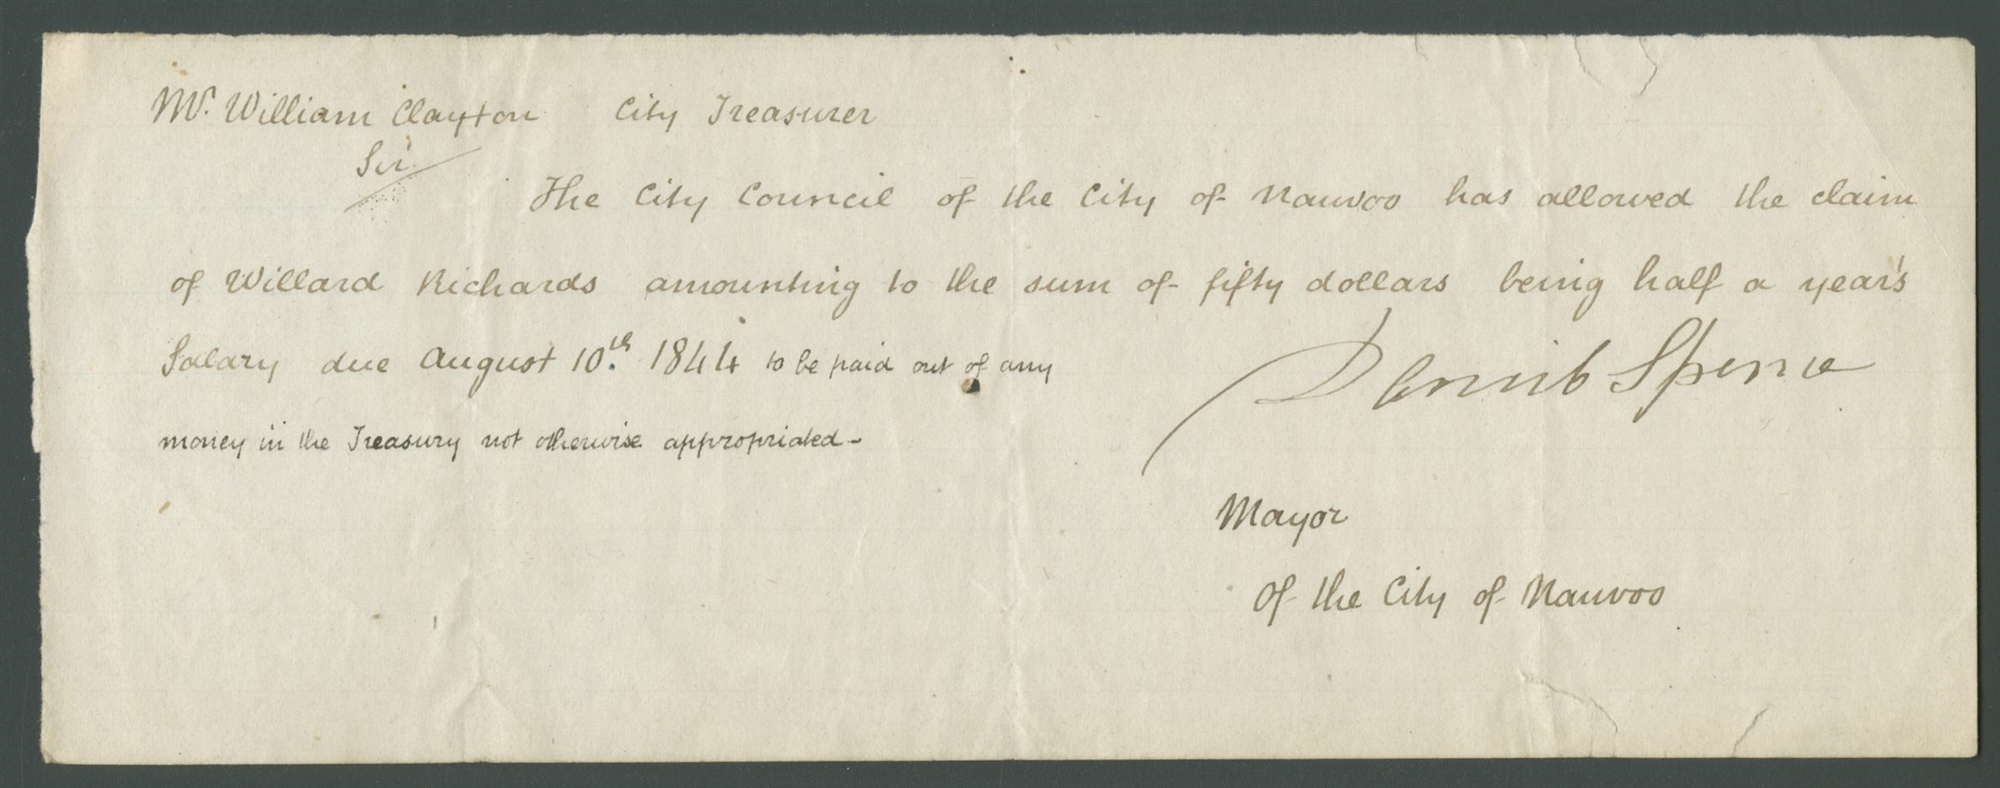 Mr. William Clayton City Treasurer
Sir
The City Council of the City of Nauvoo has allowed the claim
of Willard Richards amounting to the sum of fifty dollars being half a year's
Salary due August 10.th 1844 to be paid out of any
money in the Treasury not otherwise appropriated-
Daniel Spence
Mayor
Of the City of Nauvoo